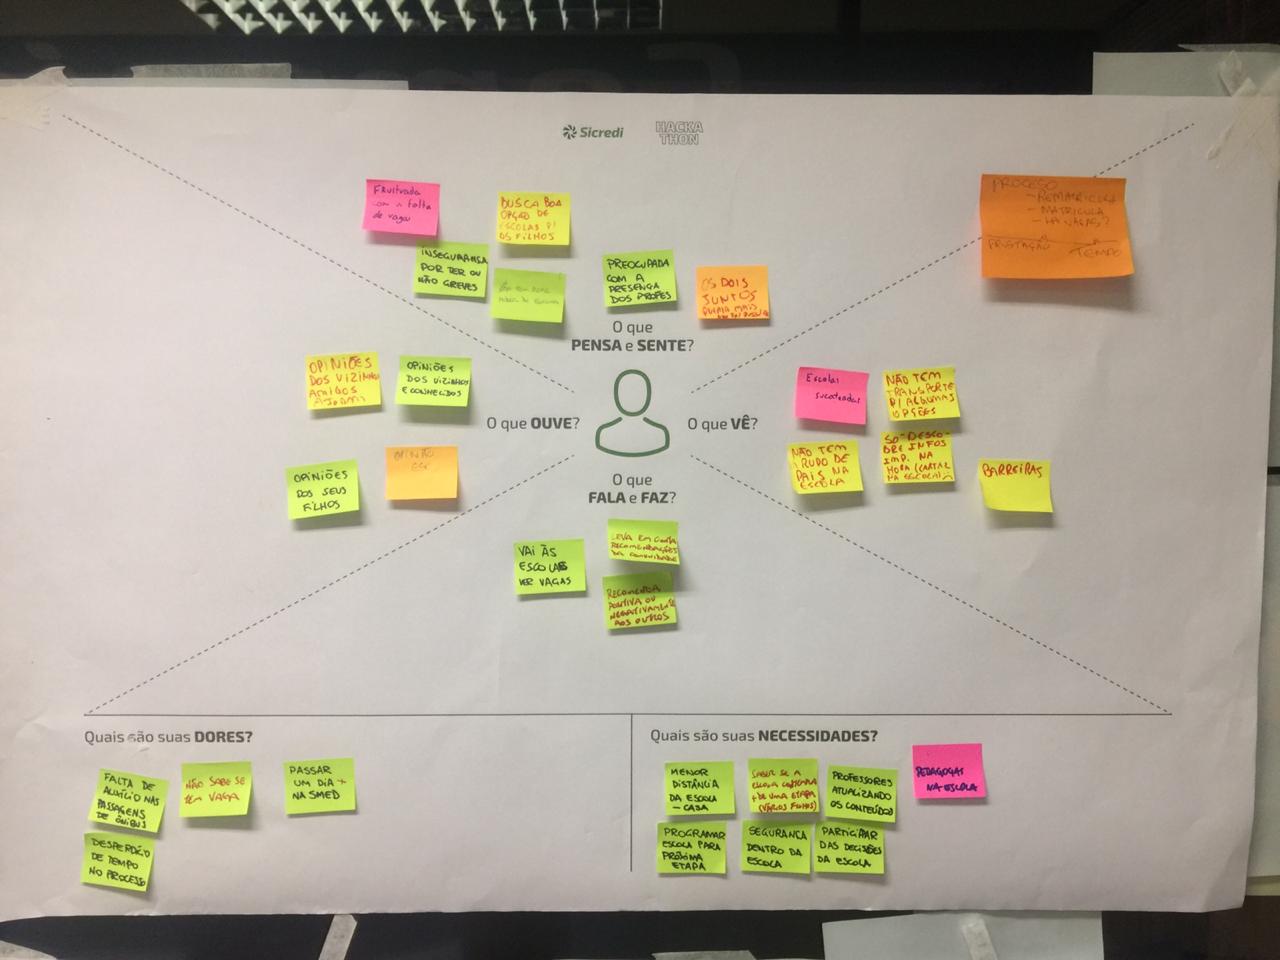 Sicredi
HACKA
THON
Frustrada
com a falta
de vagas
BUSCA BOA
OPÇÃO DE
ESCOLAS P/
OS FILHOS
INSEGURANSA
POR TER OU
NÃO GREVES
PREOCUPADA
COM A
PRESENÇA
DOS PROFES
OS DOIS
JUNTOS
O que
PENSA e SENTE?
PROCESO
- REMATRICULA
- MATRICULA
- HÁ VAGAS?
FRUSTAÇÃO
TEMPO
OPINIÕES
DOS VIZINHOS
AMIGOS
OPINIÕES
DOS VIZINHOS
E CONHECIDOS
O que OUVE?
OPINIÕES
DOS SEUS
FILHOS
OPINIÃO
O que VÊ?
Escolas
sucateadas
NÃO TEM
TRANSPORTE
P/ ALGUMAS
OPSÕES
NÃO TEM
GRUDO DE
PAIS NA
ESCOLA
SÓ DESCO-
BRE INFOS
IMP. NA
HORA (CARTAZ
NA ESCOLA)
BARREIRAS
O que
FALA e FAZ?
VAI ÀS
ESCOLAS
VER VAGAS
LEVA EM CONTA
RECOMENDAÇÕES
DA COMUNIDADE
RECOMENDA
POSITIVA OU
NEGATIVAMENTE
AOS OUTROS
Quais são suas DORES?
FALTA DE
AUXÍLIO NAS
PASSAGENS
DE ÔNIBUS
NÃO SABE SE
TEM VAGA
PASSAR
UM DIA +
NA SMED
DESPERDÍCIO
DE TEMPO
NO PROCESSO
Quais são suas NECESSIDADES?
MENOR
DISTÂNCIA
DA ESCOLA
- CASA
SABER SE A
ESCOLA CONTEMPLA
+ DE UMA ETAPA
(VÁRIOS FILHOS)
PROFESSORES
ATUALIZANDO
OS CONTEÚDOS
PEDAGOGAS
NA ESCOLA
PROGRAMAR
ESCOLA PARA
PRÓXIMA
ETAPA
SEGURANCA
DENTRO DA
ESCOLA
PARTICIPAR
DAS DECISÕES
DA ESCOLA